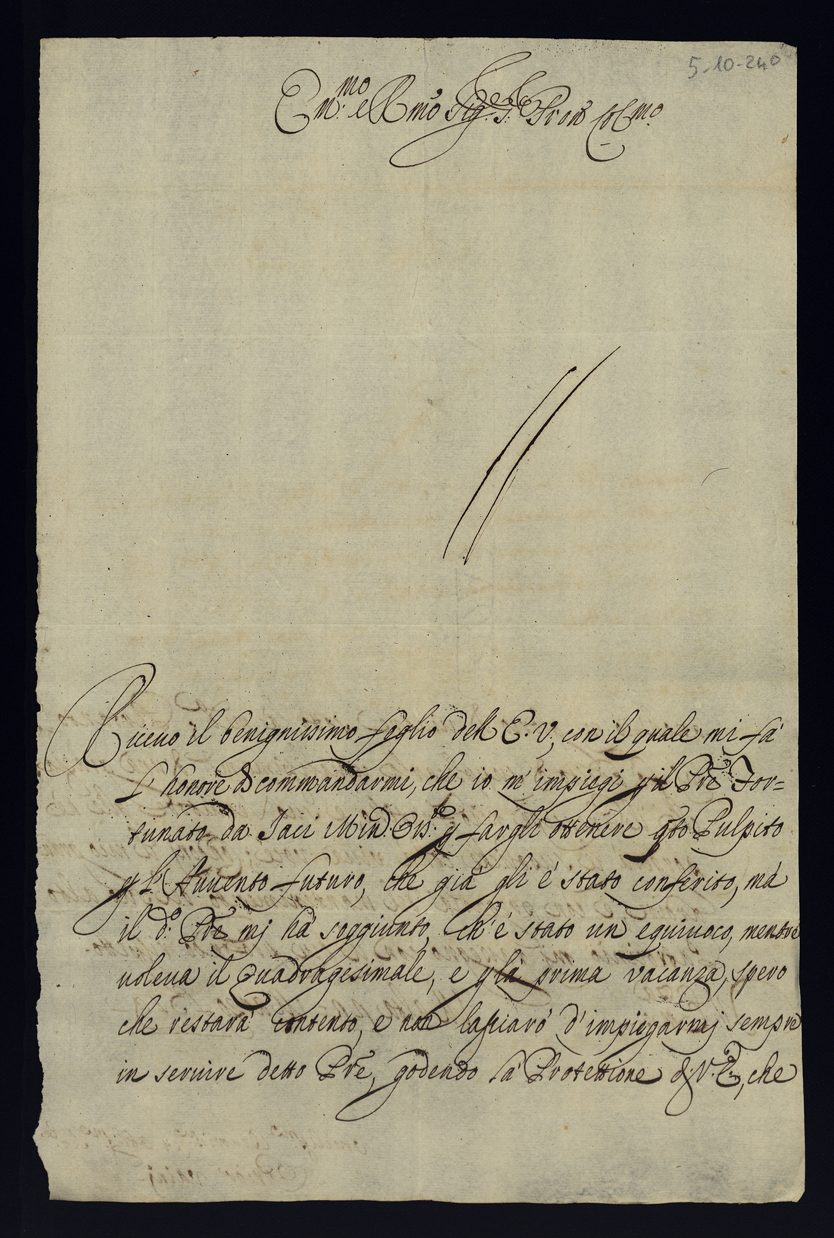 5-10-240
Em.mo e Rmo Sig.r Pron Col.mo
Riceuo il benignissimo foglio dell E. V. con il quale mi fà
l'honore di commandarmi, che io m'impieghi p il Pre For=
tunato da Iaci Min. Oss.te p fargli ottenere qto Pulpito
p l'Auuento futuro, che già gli è stato conferito, mà
il d.o Pre mj hà soggiunto, ch'è stato un equiuoco, mentre
voleua il Quadragesimale, e p la prima vacanza, spero
che restarà contento, e non lasciarò d'impiegarmj sempre
in seruire detto Pre, godendo la Protettione di V. E., che